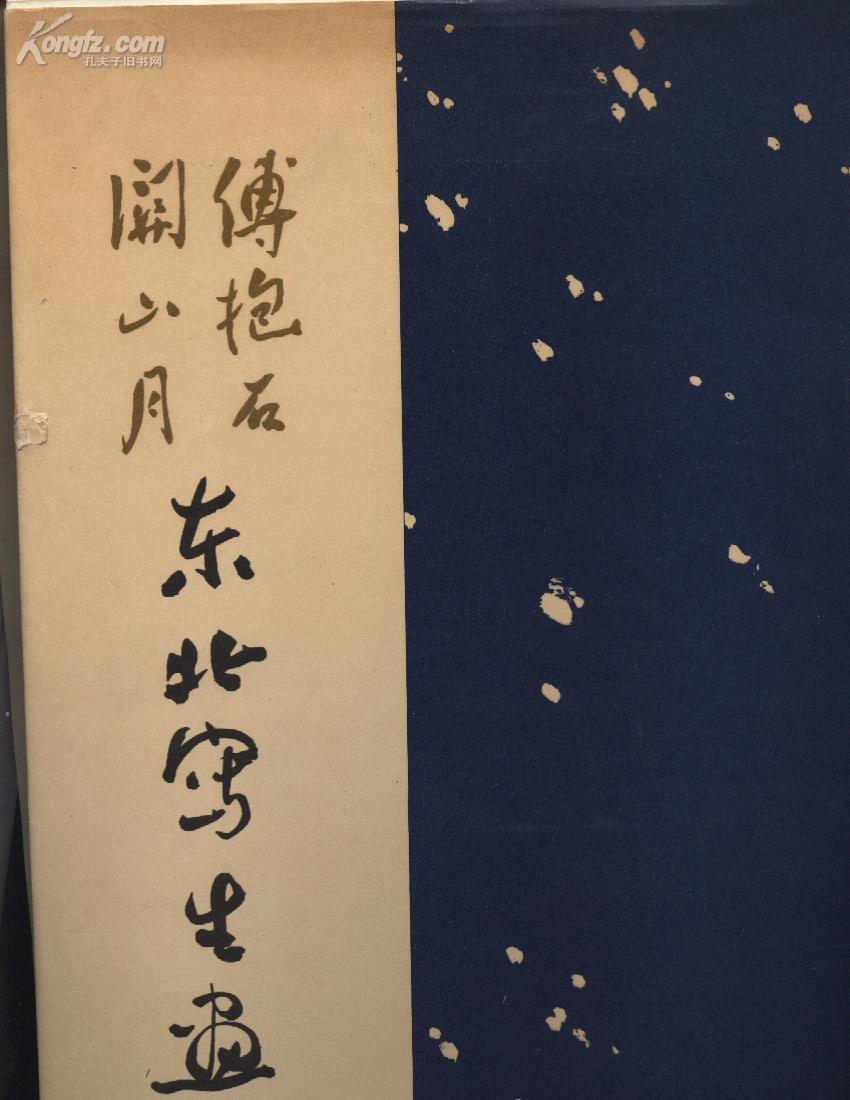 Kongfz.com
孔夫子旧书网
傅抱石
關山月
东北写生画